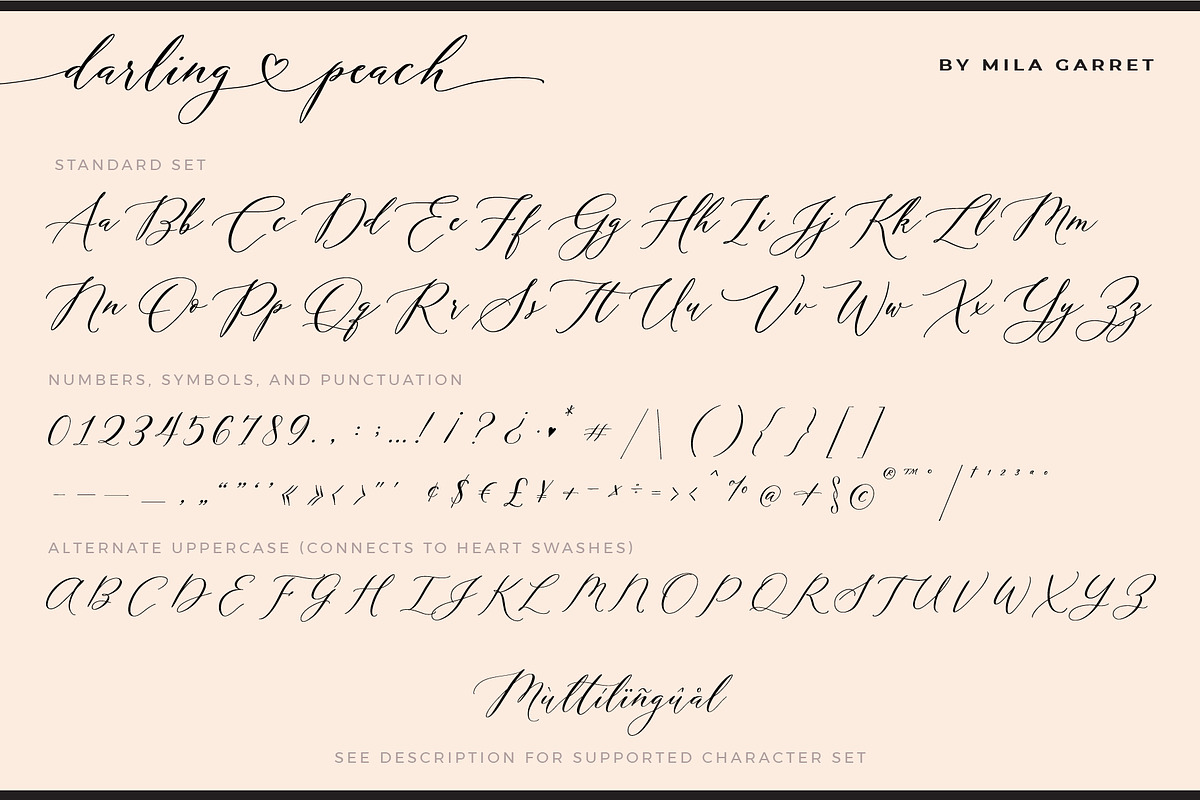 darling ♡ peach
BY MILA GARRET
STANDARD SET
Aa Bb Cc Dd Ee Ff Gg Hh Ii Jj Kk Ll Mm
Nn Oo Pp Qq Rr Ss Tt Uu Vv Ww Xx Yy Zz
NUMBERS, SYMBOLS, AND PUNCTUATION
0123456789., : ; …! ¡ ? ¿ · ♥ * # / \ ( ) { } [ ]
- – — _ ‚ „ “ ” ‘ ’ « » ‹ › " ' ¢ $ € £ ¥ + − × ÷ = > < ^ % @ & § © ® ™ ° | † 1 2 3 ª º
ALTERNATE UPPERCASE (CONNECTS TO HEART SWASHES)
A B C D E F G H I J K L M N O P Q R S T U V W X Y Z
Mùltílïñgûål
SEE DESCRIPTION FOR SUPPORTED CHARACTER SET